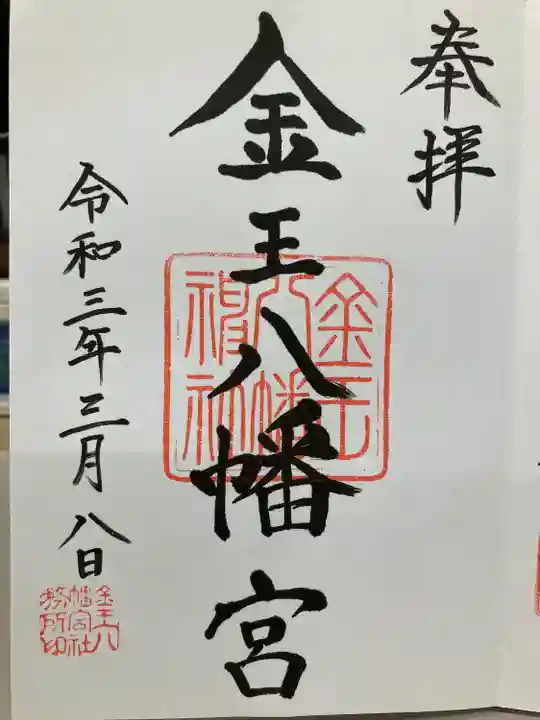 奉拝
金王八幡宮
金王八幡神社
令和三年三月八日
金王八幡宮社務所印